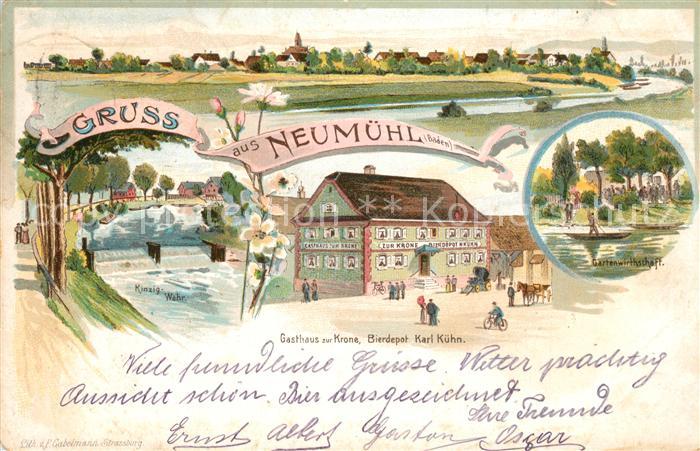 GRUSS
aus NEUMÜHL (Baden)
Kinzig-
Wehr.
GASTHAUS ZUR KRONE
ZUR KRONE BIERDEPOT K. KÜHN
Gartenwirthschaft.
Gasthaus zur Krone, Bierdepot Karl Kühn.
Viele freundliche Grüsse. Wetter prächtig
Aussicht schön. Bier ausgezeichnet.
Ihre Freunde
Ernst Albert Gaston Oscar
Lith. v. F. Gabelmann, Strassburg.